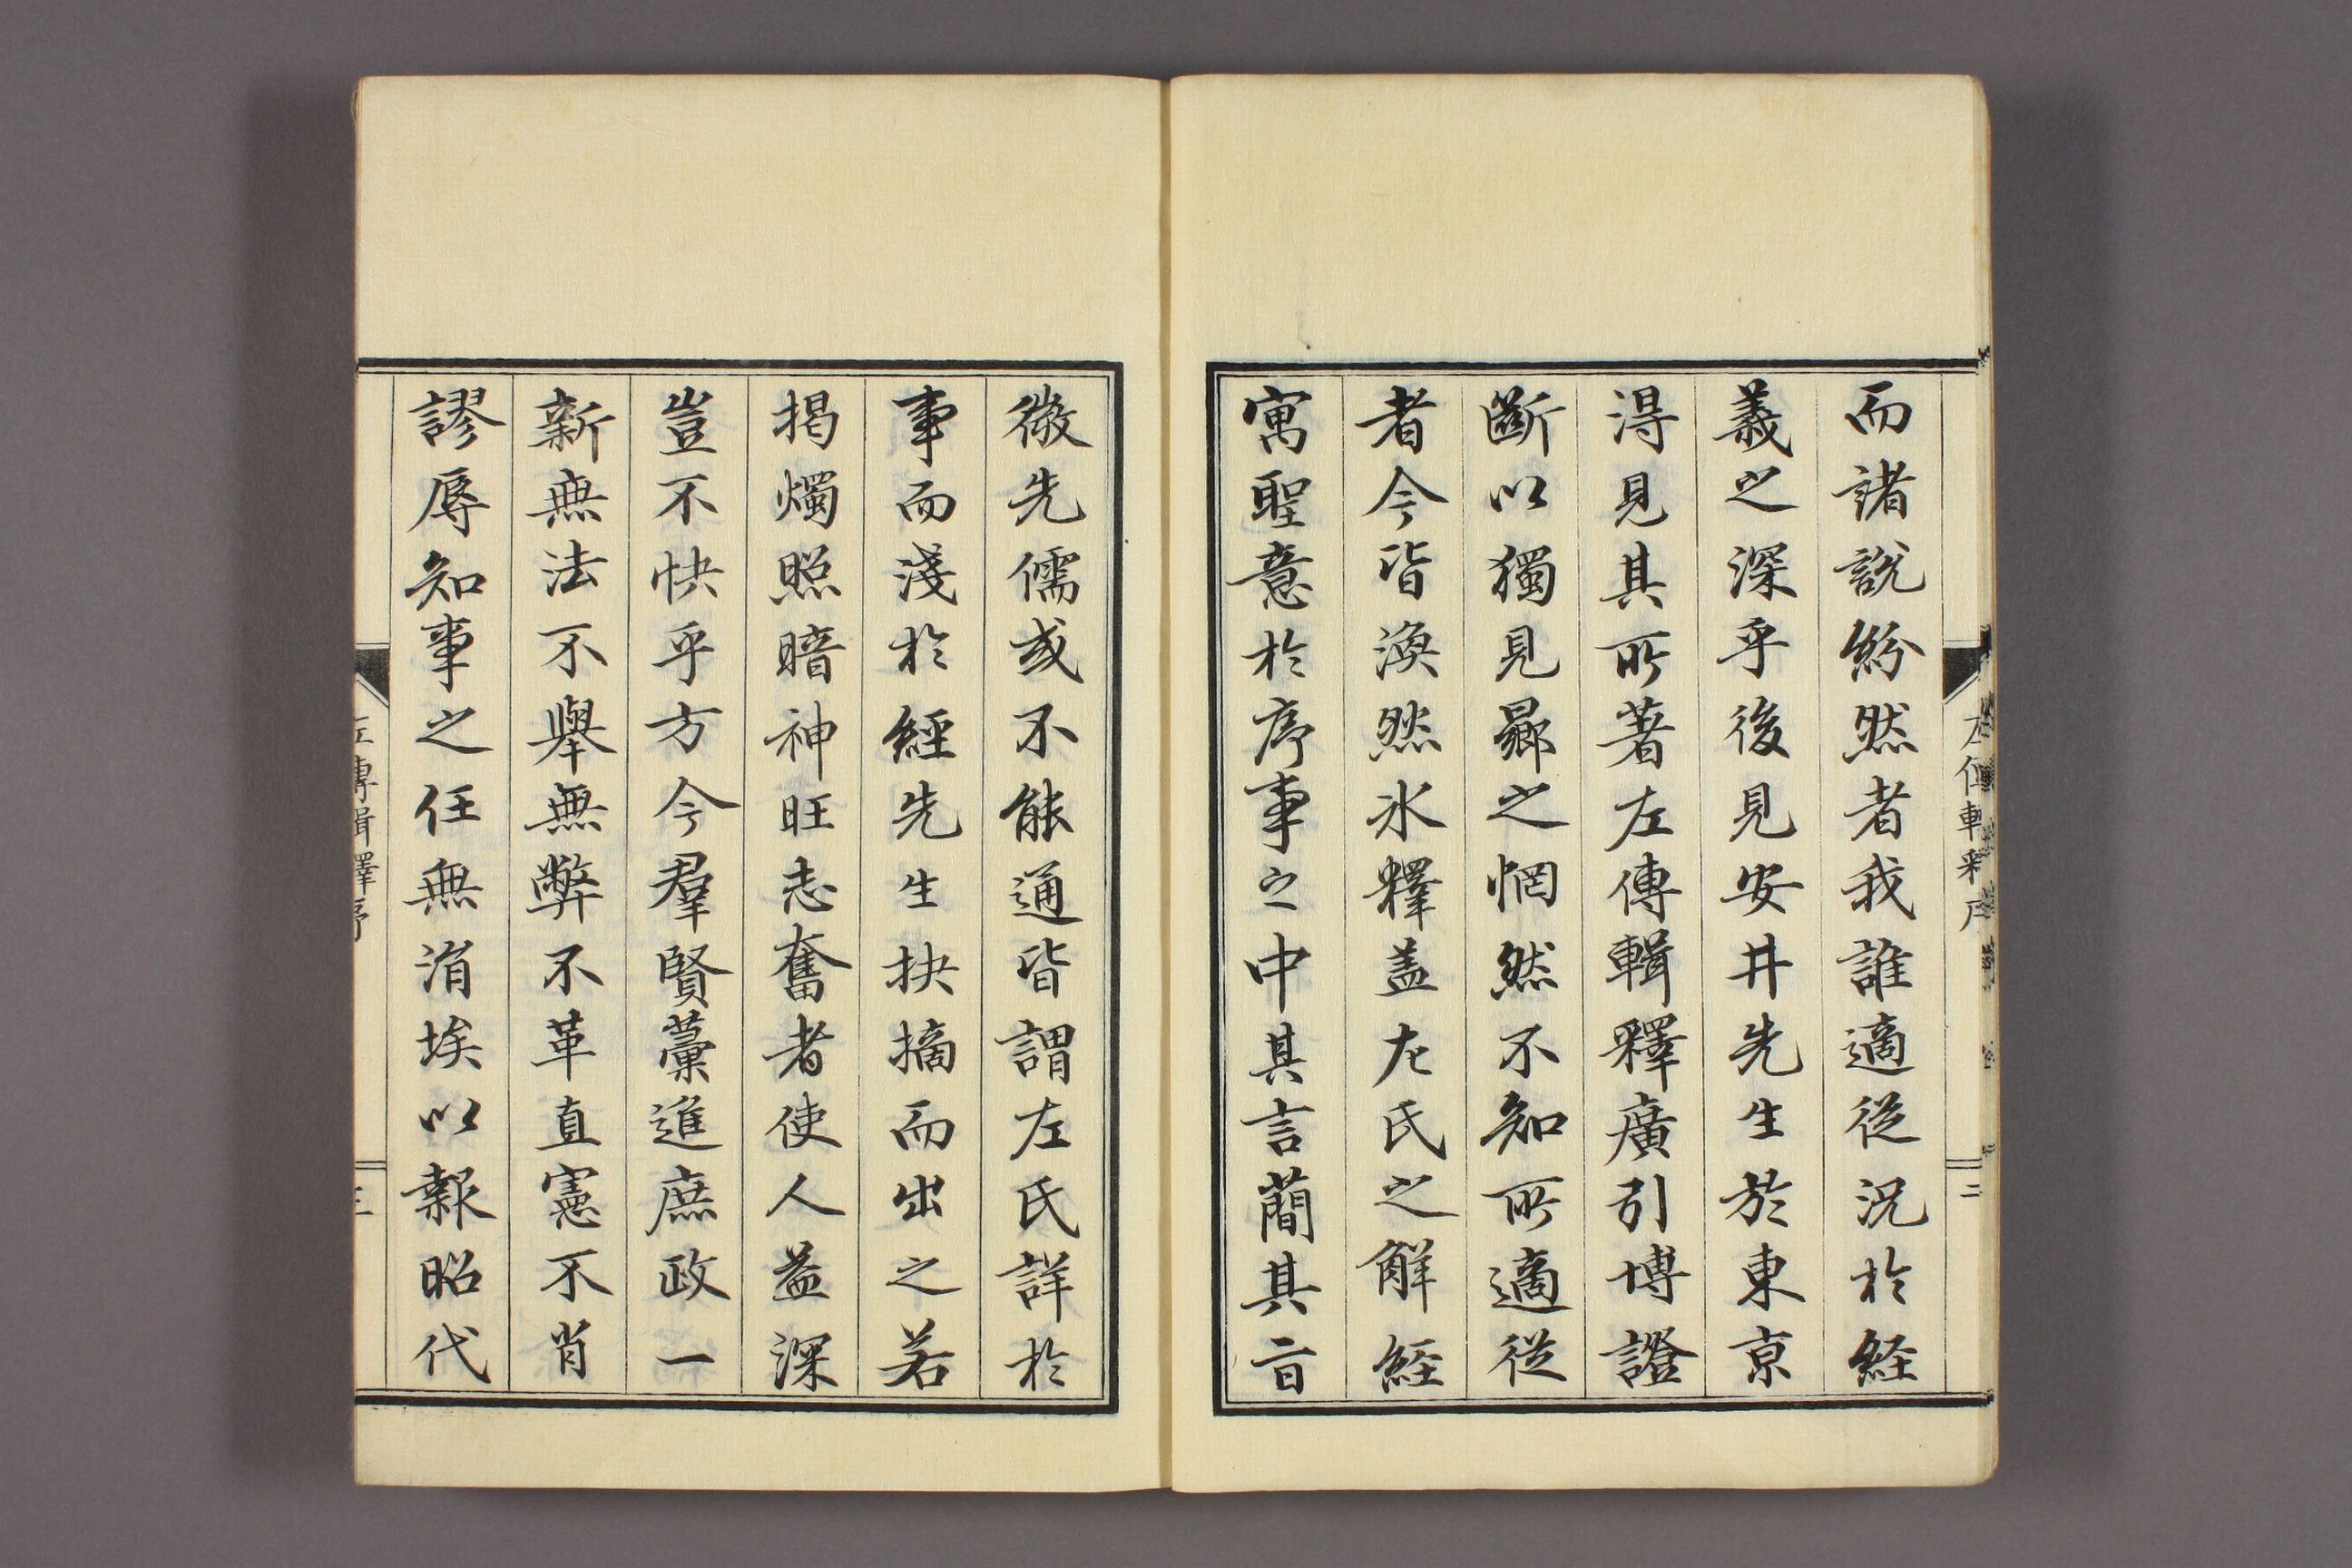 而諸說紛然者我誰適從況於経
義之深乎後見安井先生於東京
淂見其所著左傳輯釋廣引博證
斷以獨見曏之惘然不知所適從
者今皆渙然氷釋盖左氏之解経
寓聖意於序事之中其言蕳其旨
微先儒或不能通皆謂左氏詳於
事而淺於經先生抉摘而出之若
掲燭照暗神旺志奮者使人益深
豈不快乎方今羣賢彙進庶政一
新無法不舉無弊不革直憲不肖
謬辱知事之任無涓埃以報昭代
左傳輯釋序
三
二